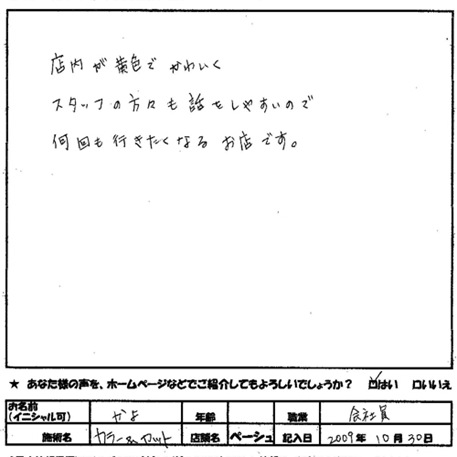 店内が黄色でかわいく
スタッフの方々も話をしやすいので
何回も行きたくなるお店です。
★ あなた様の声を、ホームページなどでご紹介してもよろしいでしょうか？ ☑はい □いいえ
お名前（イニシャル可） かよ 年齢 職業 会社員
施術名 カラー&カット 店舗名 ベーシュ 記入日 2009年 10月 30日